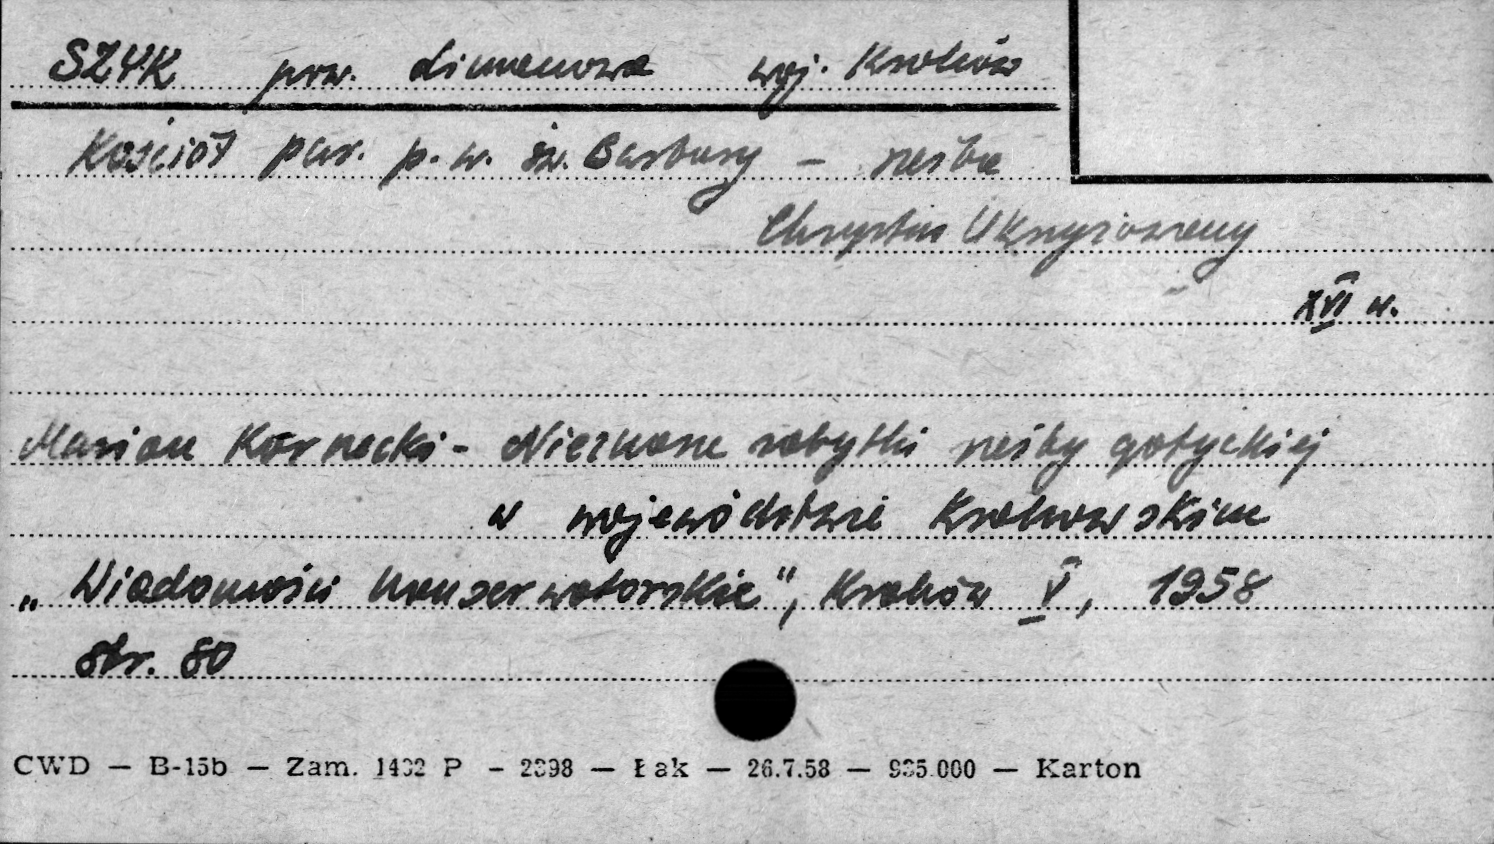 SZYK pow. Limanowa woj. Kraków
Kościół par. p.w. św. Barbary – rzeźba
Chrystus Ukrzyżowany
XVI w.
Marian Kornecki - Nieznane zabytki rzeźby gotyckiej
w województwie Krakowskim
„Wiadomości Konserwatorskie", Kraków V, 1958
str. 80
CWD — B-15b — Zam. 1432 P - 2398 — Łak — 26.7.58 — 935.000 — Karton